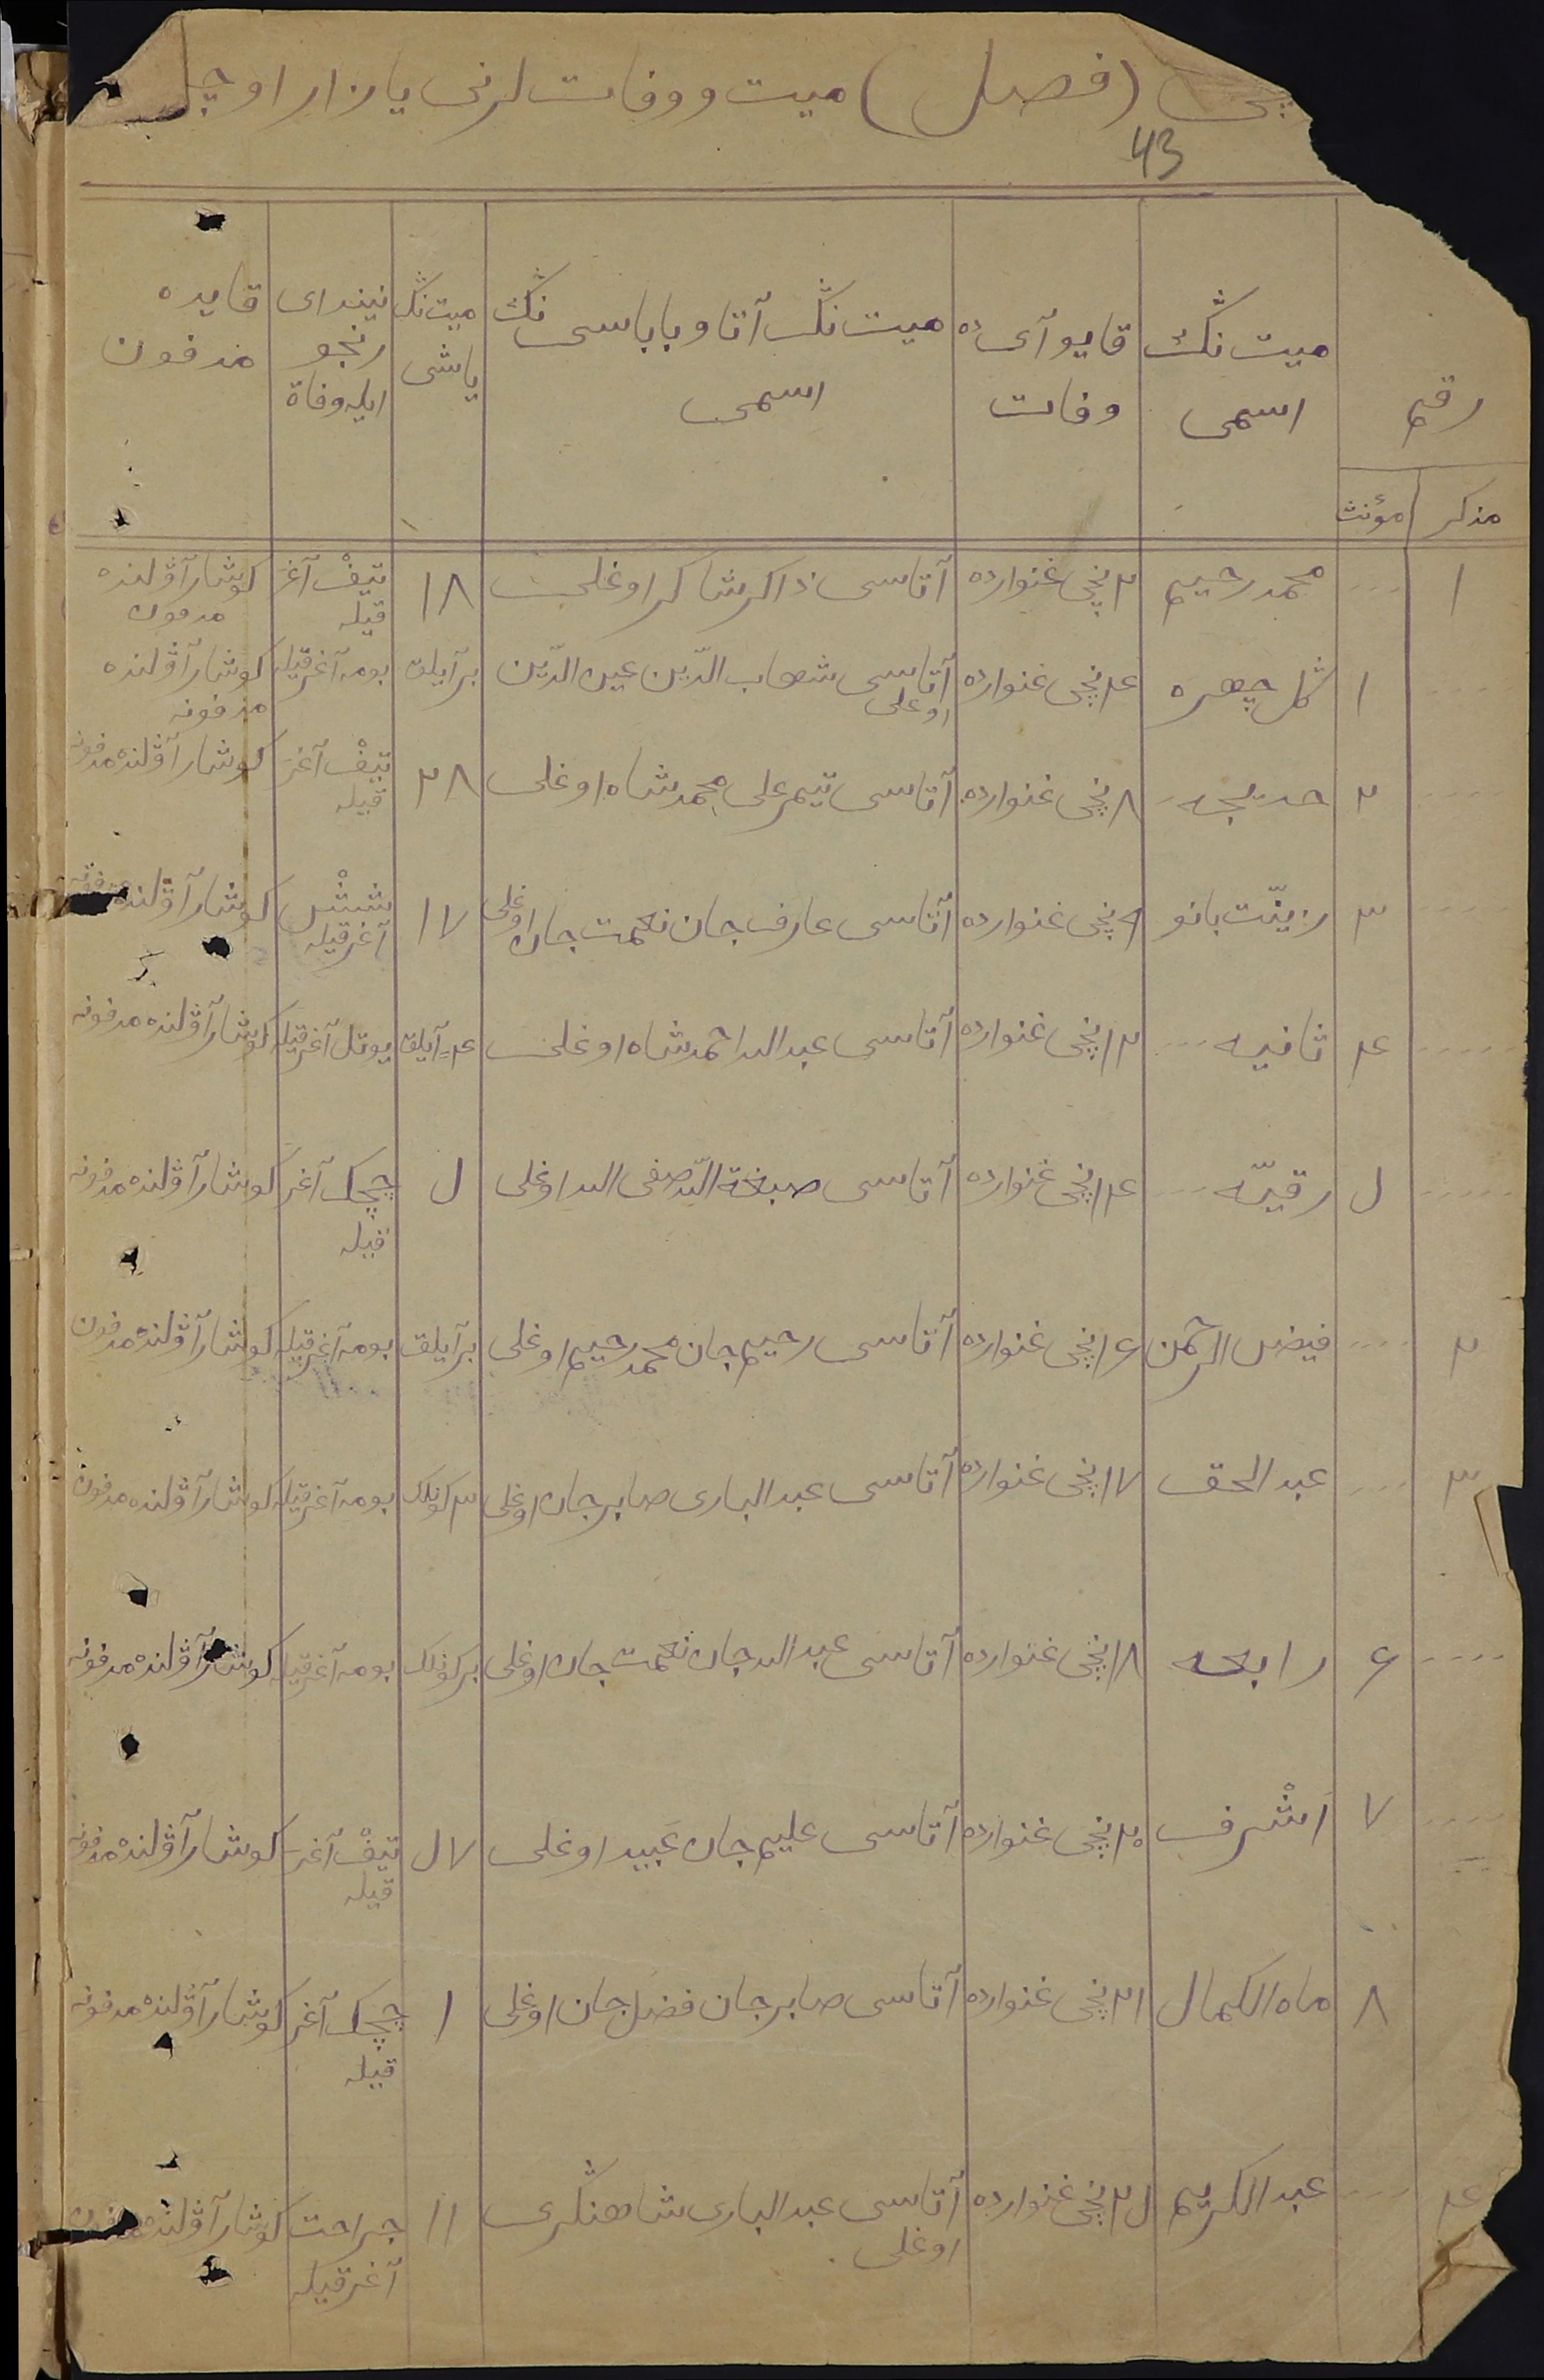 چی (فصل) میت و وفات لرنی یازار اوچ
43
رقم
مذکر مؤنث
میت نڭ اسمی
قایو آی ده وفات
میت نڭ آتا و باباسی نڭ اسمی
میت نڭ یاشی
نیندای رنجو ایله وفاة
قایده مدفون
۱ ... محمد رحیم ۲ نچی غنوارده آتاسی ذاکر شاکر اوغلی ۱۸ تیفْ آغرَ قیله کوشار آۋلنده مدفون
... ۱ گل چهره ۴ نچی غنوارده آتاسی شهاب الدّین عین الدّین اوغلی بر آیلق بومه آغرقیله کوشار آۋلنده مدفونه
... ۲ خدیجه ۸ نچی غنوارده آتاسی تیمر علی محمد شاه اوغلی ۲۸ تیفْ آغرَ قیله کوشار آۋلنده مدفونه
... ۳ زینّت بانو ۹ نچی غنوارده آتاسی عارف جان نعمت جان اوغلی ۱۷ شِشْ آغرقیله کوشار آۋلنده
... ۴ ثانیه ۱۲ نچی غنوارده آتاسی عبد الله احمد شاه اوغلی ۴ آیلق یوتل آغرقیله کوشار آۋلنده مدفونه
... ل رقیّه ۱۴ نچی غنوارده آتاسی صبغة الله صفی الله اوغلی ل چچک آغرَ قیله کوشار آۋلنده مدفونه
۲ ... فیض الرحمن ۱۶ نچی غنوارده آتاسی رحیم جان محمد رحیم اوغلی بر آیلق بومه آغرقیله کوشار آۋلنده مدفون
۳ ... عبد الحق ۱۷ نچی غنوارده آتاسی عبد الباری صابر جان اوغلی ۳ کونلک بومه آغرقیله کوشار آۋلنده مدفون
... ۶ رابعه ۱۸ نچی غنوارده آتاسی عبد الله جان نعمت جان اوغلی بر کونلک بومه آغرقیله کوشار آۋلنده مدفونه
... ۷ اَشْرف ۲۰ نچی غنوارده آتاسی علیم جان عَبید اوغلی ل۷ تیفْ آغرَ قیله کوشار آۋلنده مدفونه
۸ ماه الکمال ۲۱ نچی غنوارده آتاسی صابر جان فضل جان اوغلی ۱ چچک آغرَ قیله کوشار آۋلنده مدفونه
۴ ... عبد الکریم ۲ل نچی غنوارده آتاسی عبد الباری شاهنگری اوغلی ۱۱ جراحت آغرقیله کوشار آۋلنده مدفون